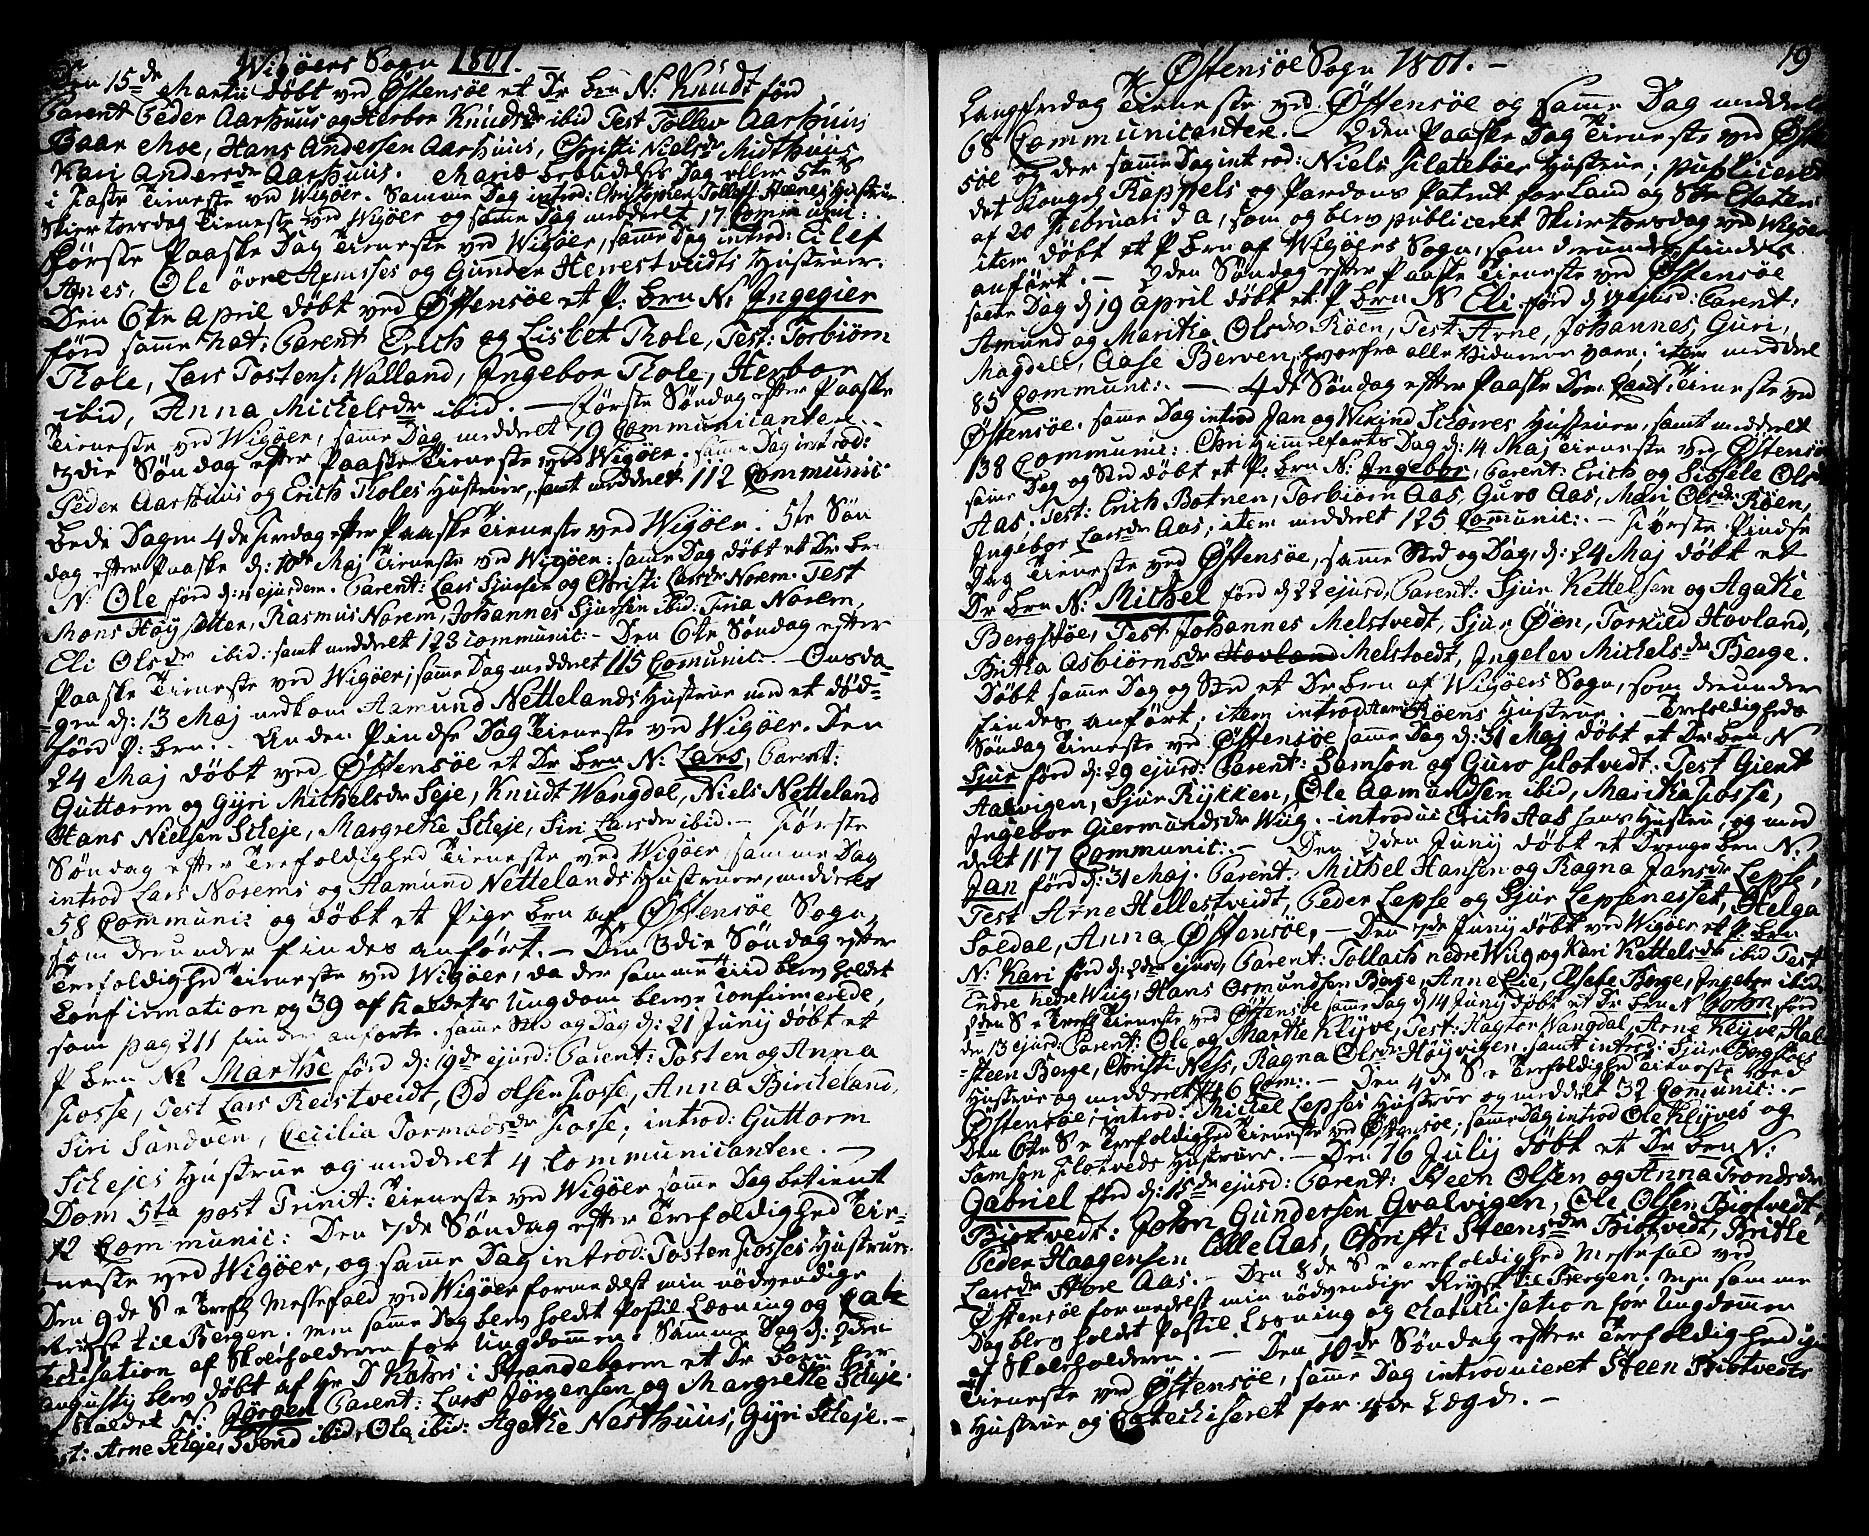 Wigöers Sogn 1801.
Den 15de Martii döbt ved Östensöe et Dr brn N: Knudt förd
Parent Peder Aarhuus og Herbor Knudsdr ibid Test Tollev Aarhuus
Baar Moe, Hans Andersen Aarhuus, Christi Nielsdr Midthuus
Kari Andersdr Aarhuus. Mariæ bebudelses Dag eller 5te S
i Faste Tieneste ved Wigöer. Samme Dag introd: Christopher Tollefs Hustrue
Skiertorsdag Tieneste ved Wigöer og samme Dag meddeelt 17 Communic:
Förste Paaske Dag Tieneste ved Wigöer, samme Dag introd: Eilef
Ole övre og Gunder Henestveidts Hustruer.
Den 6te April döbt ved Östensöe et P: brn N: Ingegier
förd samme nat: Parent Erich og Lisbet Thole, Test: Torbiörn
Thole, Lars Tostens: Walland, Ingebor Thole, Herbor
ibid, Anna Michelsdr ibid. — Förste Söndag efter Paaske
Tieneste ved Wigöer, samme Dag meddeelt 79 Communicanter.
3die Söndag efter Paaske Tieneste ved Wigöer. samme Dag introd:
Peder Aarhuus og Erich Tholes Hustruer, samt meddeelt 112 Communic.
Bede Dagen 4de Fredag efter Paaske Tieneste ved Wigöer. 5te Sön
dag efter Paaske d: 10de Maj Tieneste ved Wigöer: samme Dag döbt et Dr br
N: Ole förd d: ejusdem. Parent: Lars Sjursen og Christi Larsdr Norem. Test
Mons Höysætter, Rasmus Norem, Johannes Sjursen ibid: Norem,
Eli Olsdr ibid: samt meddeelt 123 communic: — Den 6te Söndag efter
Paaske Tieneste ved Wigöer; samme Dag meddeelt 115 Communic. — Onsda-
gen d: 13 Maj nedkom Aamund Nettelands Hustrue med et död-
förd P: brn. Anden Pindse Dag Tieneste ved Wigöer. Den
24 Maj döbt ved Östensöe et Dr brn N: Lars, Parent:
Guttorm og Gyri Michelsdr Seje, Knudt Wangdal, Niels Netteland
Hans Nielsen Scheje, Margrethe Scheje, Siri Larsdr ibid. — Förste
Söndag efter Trefoldighed Tieneste ved Wigöer samme Dag
introd Lars Norems og Aamund Nettelands Hustruer, meddeelt
58 Communic: og döbt et Pige brn af Östensöe Sogn,
som derunder findes anfört. — Den 3die Söndag efter
Trefoldighed Tieneste ved Wigöer, da der samme Tiid blev holdet
Confirmation og 39 af kaldets Ungdom bleve Confirmerede,
som pag 211 findes anförte. samme Sted og Dag d: 21 Junij döbt et
P brn N: Marthe förd d: 19de ejusd: Parent: Tosten og Anna
Fosse, Test Lars Reistveidt, Od olsen Fosse, Anna Birkeland,
Siri Sandven, Cecilia Tormodsdr Fosse; introd: Guttorm
Schejes Hustrue og meddeelt 4 Communicantere. —
Dom 5ta post Trinit: Tieneste ved Wigöer samme Dag betient
12 Communic: Den 7de Söndag efter Trefoldighed Tie-
neste ved Wigöer, og samme Dag introd: Tosten Fosses Hustrue
Den 9de S e Trefd Messefald ved Wigöer formedelst min nödvendige
Reise til Bergen. men samme Dag blev holdet Postil Læsning og Cate
techisation af Skoleholderen for Ungdommen. Samme Dag d: 2den
Augustij blev döbt af Hr D Kahrs i Strandebarm et Dr Barn her
af Kaldet N: Jörgen Parent: Lars Jörgensen og Margrethe Scheje.
Test: Arne Scheje, Svend ibid, Ole ibid: Agathe Nesthuus, Gyri Scheje. —
Östensöe Sogn 1801. — 19
Langfredag Tieneste ved Östensöe og samme Dag meddeelt
68 Communicantere. — 2den Paaske Dag Tieneste ved Östen
söe og der samme Dag introd: Niels Flateböes Hustrue; publiceret
det Kongel Rappels og Pardons Patent for Land og Söe Etaten
af 20 Februari d a, som og blev publiceret Skiertorsdag ved Wigöer
item döbt et P brn af Wigöers Sogn, som derunder findes
anfört. — 2den Söndag efter Paaske Tieneste ved Östensöe
samme Dag d 19 April döbt et P brn N Eli förd d 17 ejusd: Parent:
Amund og Maritha Olsdr Röen, Test Arne, Johannes, Guri,
Magdele, Aase Berven, hvorfra alle Vidnerne vare. item meddeel
85 Communic: — 4de Söndag efter Paaske Dom: Cant: Tieneste ved
Östensöe. samme Dag introd Jan og Wikind Schörres Hustruer, samt meddeelt
138 Communic: Chri Himmelfarts Dag d: 14 Maj Tieneste ved Östensöe
samme Dag og Sted döbt et P: brn N: Ingebor, Parent: Erich og Sissele Olsdr
Aas. Test: Erich Botnen, Torbiörn Aas, Guro Aas, Mari Olsdr Röen,
Ingebor Larsdr Aas; item meddeelt 125 Communic: — Förste Pindse
Dag Tieneste ved Östensöe, samme Sted og Dag d: 24 Maj döbt et
Dr brn N: Michel förd d 22 ejusd, Parent: Sjur Kettelsen og Agathe
Bergstöe, Test Johannes Melstvedt, Sjur Öen, Torkild Hovland,
Britha Asbiörnsdr Hovland Melstvedt, Ingelev Michelsdr Berge.
Döbt samme Dag og Sted et Dr brn af Wigöers Sogn, som derunder
findes anfört; item introd Aamund Röens Hustrue. — Trefoldigheds
Söndag Tieneste ved Östensöe samme Dag d: 31 Maj döbt et Dr brn N
Sjur förd d: 29 ejusd: Parent: Samson og Guro Flotvedt. Test Gient
Aalvigen, Sjur Rykken, Ole Aamundsen ibid, Maritha Fosse,
Ingebor Giermundsdr Wiig. — introduc Erich Aas hans Hustru; og med
deelt 117 Communic: — Den 2den Junij döbt et Drenge brn N:
Jan förd d: 31 Maj. Parent: Michel Hansen og Ragna Jansdr Lepse,
Test Arne Hellestveidt, Peder Lepse og Sjur Lepsenesset, Helga
Soldal, Anna Östensöe, — Den 7de Junij döbt ved Wigöer et P: brn
N: Kari förd d: 2den ejusd, Parent: Tollach nedre Wiig og Kari Kettelsdr ibid Test
Endre nedre Wiig, Hans Osmundsen Berge, Anne Lie, Elsebe Berge, Ingebor ibid
2den S e Trefd Tieneste ved Östensöe samme Dag d 14 Junij döbt et Dr brn N John förd
den 13 ejusd: Parent: Ole og Marthe Klyve, Test: Hagtor Wangdal, Arne Klyve, Hal-
steen Berge, Christi Ness, Ragna Olsdr Höyvigen, samt introd: Sjur Bergstöes
Hustrue og meddeelt 46 Com: — Den 4de S e Trefoldighed Tieneste ved
Östensöe; introd: Michel Lepses Hustrue og meddelt 32 Communic: —
Den 6te S e Trefoldighed Tieneste ved Östensöe; samme Dag introd Ole Klyves og
Samson Flotveds Hustruer. — Den 16 Julij döbt et Dr brn N:
Gabriel förd d: 15de ejusd: Parent: Steen Olsen og Anna Trondsdr
Biotvedt: John Gundersen Qvalvigen, Ole Olsen Biotvedt,
Peder Haagensen Lille Aas, Christi Steensdr Biotvedt, Brithe
Larsdr Store Aas. — Den 8de S e Trefoldighed Messefald ved
Östensöe formedelst min nödvendige Reyse til Bergen; men samme
Dag blev holdet Postil Læsning og Catechisation for Ungdommen
af Skoleholderen. — Den 10de Söndag efter Trefoldighed
Tieneste ved Östensöe, samme Dag introduceret Steen Biotvedts
Hustrue og Catechiseret for 4de Lægd. —